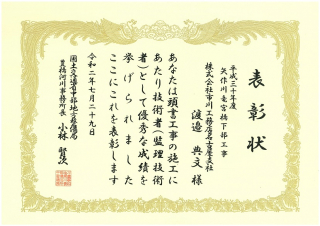 表彰状
平成三十年度
矢作川竜宮橋下部工事
株式会社市川工務店名古屋支社
渡邉典文様
あなたは頭書工事の施工に
あたり技術者(監理技術
者)として優秀な成績を
挙げられました
ここにこれを表彰します
令和二年七月二十九日
国土交通省中部地方整備局
豊橋河川事務所長 小林賢次